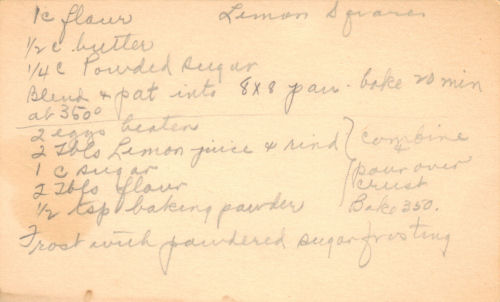 Lemon Squares
1c flour
1/2 c butter
1/4 c Powded sugar
Blend & pat into 8x8 pan - bake 20 min
at 350°
2 eggs beaten
2 Tbls Lemon juice & rind
1 c sugar
2 Tbls flour
1/2 tsp baking powder
combine
&
pour over
crust
Bake 350.
Frost with powdered sugar frosting